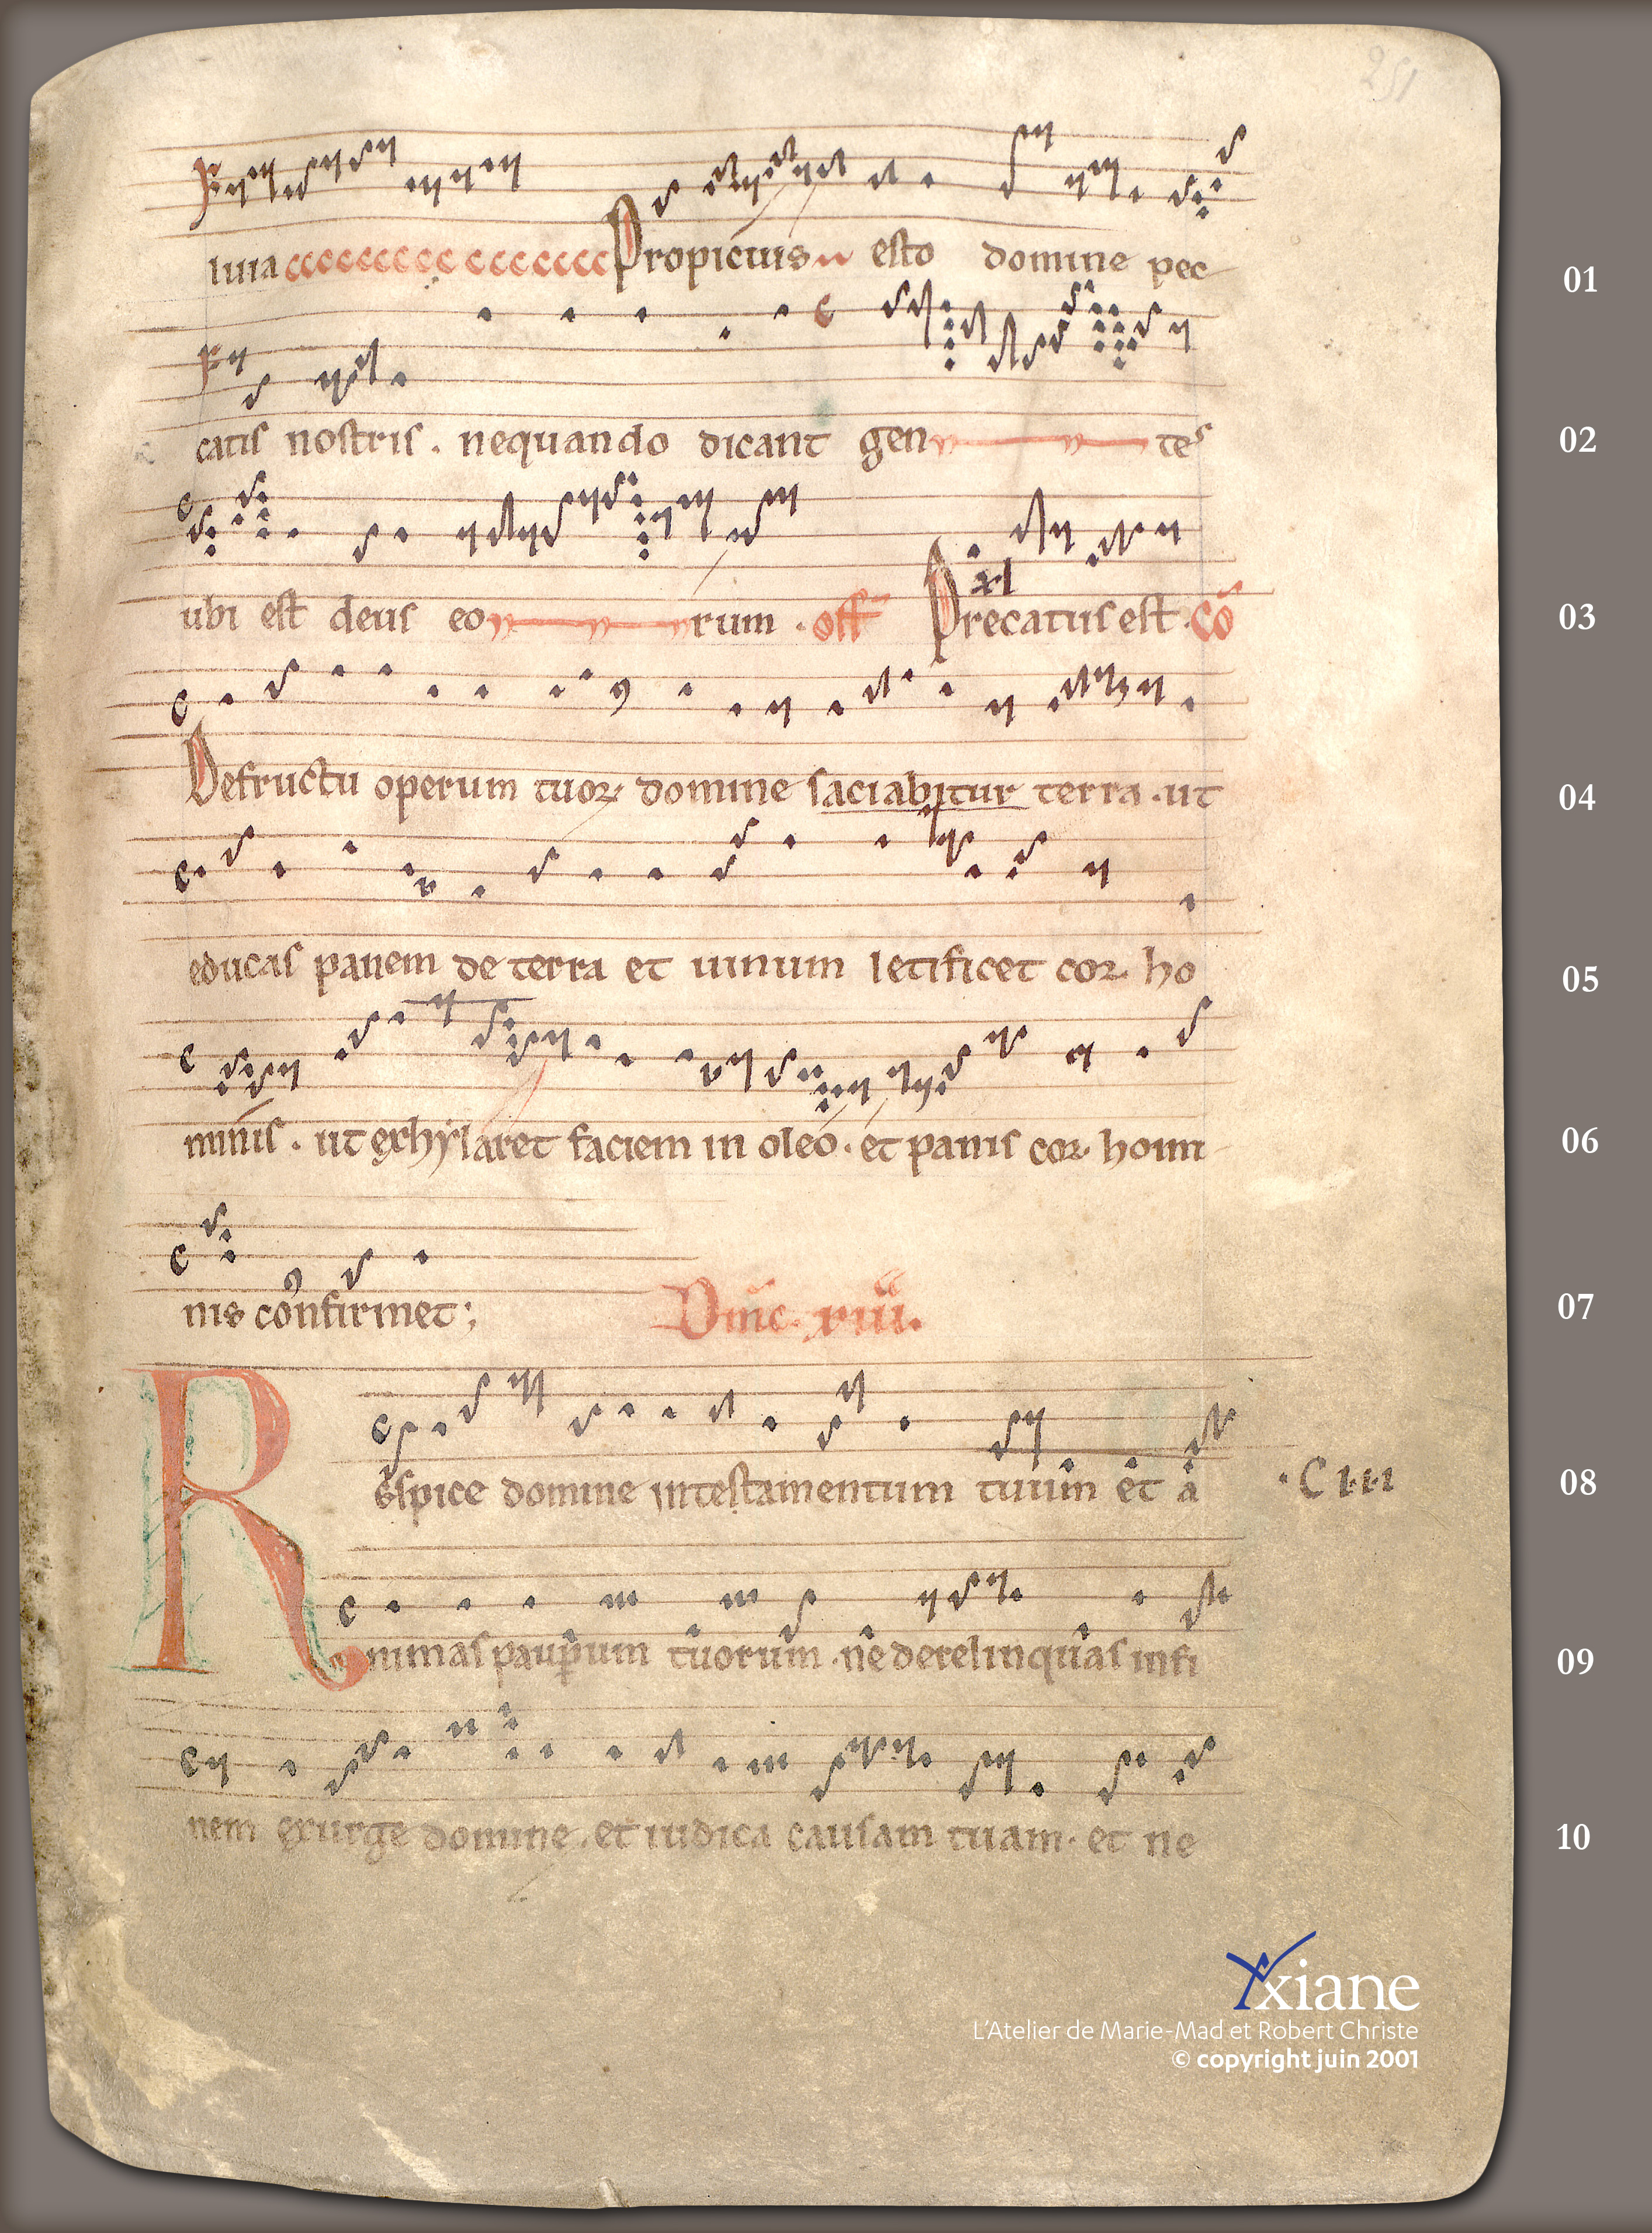 251
luia Propicius esto domine pec 01
catis nostris . nequando dicant gen tes 02
ubi est deus eo rum . off Precatus est . Cō xl 03
Defructu operum tuoꝝ domine saciabitur terra . ut 04
educas panem de terra et uinum letificet cor ho 05
minis . ut exhylaret faciem in oleo . et panis cor homi 06
nis confirmet ; Dnīc . xiiii . 07
Respice domine intestamentum tuum et a . C iii 08
nimas paup̄um tuorum . ne derelinquas infi 09
nem exurge domine . et iudica causam tuam . et ne 10
Yxiane
L'Atelier de Marie-Mad et Robert Christe
© copyright juin 2001